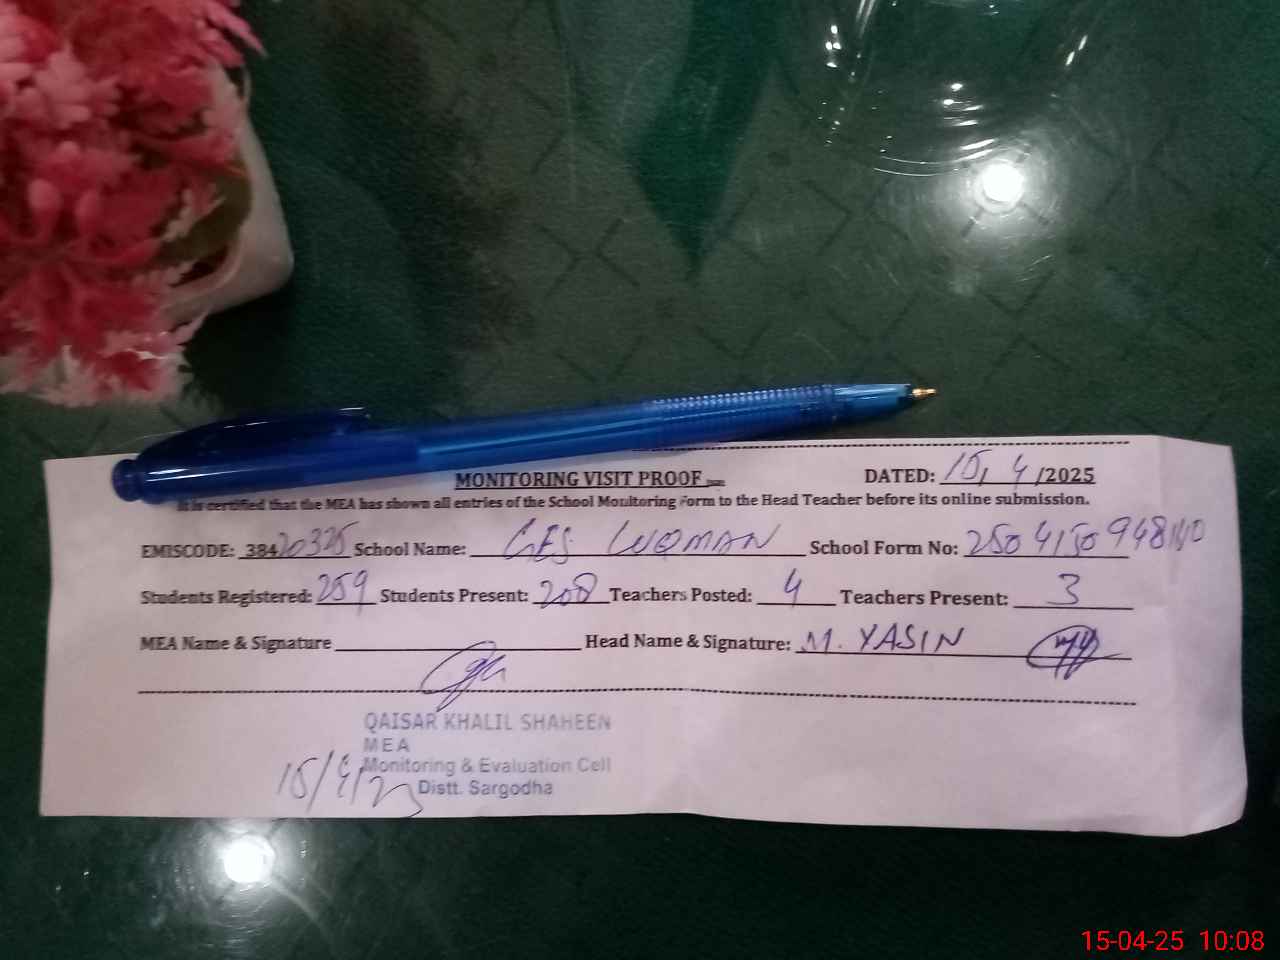 MONITORING VISIT PROOF DATED: 15, 4 /2025
It is certified that the MEA has shown all entries of the School Monitoring Form to the Head Teacher before its online submission.
EMISCODE: 38420325 School Name: GES LUQMAN School Form No:
Students Registered: 259 Students Present: 208 Teachers Posted: 4 Teachers Present: 3
MEA Name & Signature Head Name & Signature: M. YASIN
QAISAR KHALIL SHAHEEN
MEA
Monitoring & Evaluation Cell
15/4/25 Distt. Sargodha
15-04-25 10:08